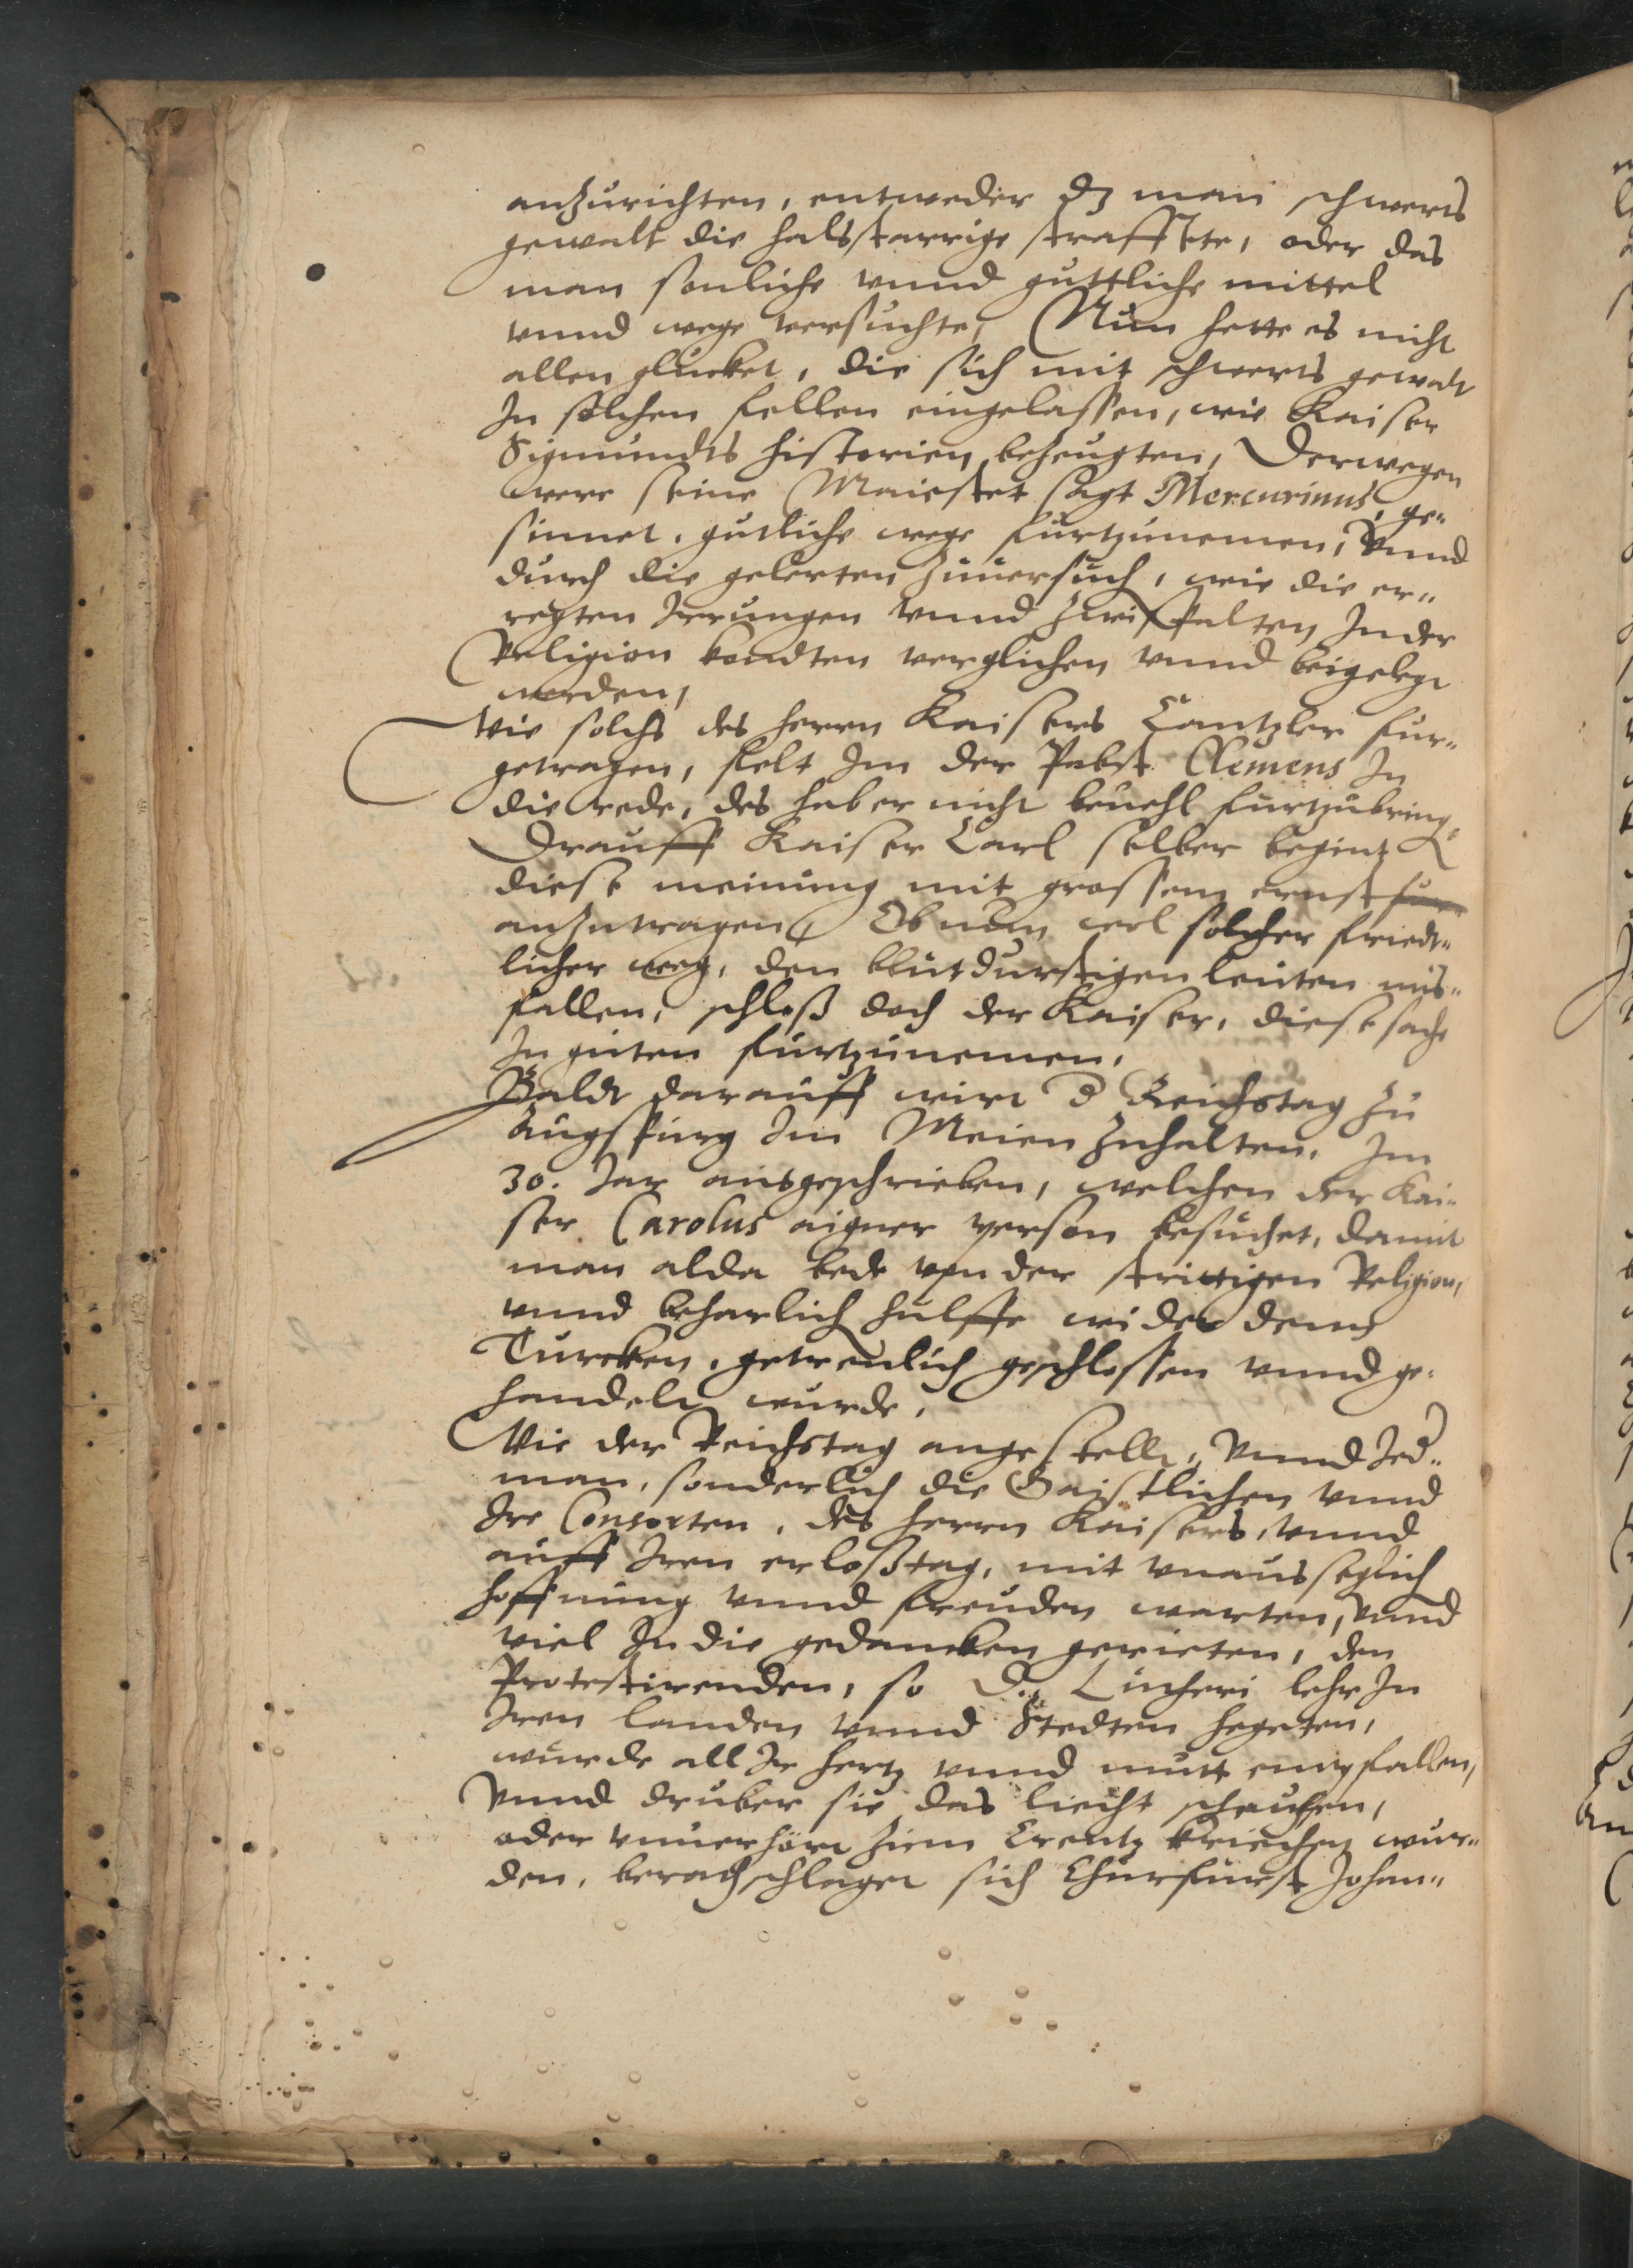 anzurichten, entweder dz man schwerts
gewalt die halsstarrige straffete, oder das
man sonliche vnnd guttliche mittel
vnnd wege versuchte, Nun hette es nicht
allen glucket, die sich mit schwerts gewalt
In solchen fellen eingelassen, wie Kaiser
Sigmundts historien bezeugten, Derwegen
were seine Maiestet sagt Mercurinus, ge„
sinnet, gutliche wege furtzunemen, Vnnd
durch die gelerten zuuersuch, wie die er„
regten Irrungen vnnd zwispalten In der
Religion kondten verglichen vnnd beigelegt
werden,
Wie solchs des herrn Kaisers Cantzler fur„
getragen, felt Im der Pabst Clemens In
die rede, des hab er nicht beuehl furtzubring,
Drauff Kaiser Carl selber begint
diese meinung mit grossem ernst fur
anzutragen, Ob nun wol solcher friedt„
licher weg, den blutdurstigen leuten mis„
fallen, schloß doch der Kaiser, diese sache
In guten furtzunemen.
Baldt darauff wirt d Reichstag zu
Augspurg Im Meien zuhalten, Im
30. Jar ausgeschrieben, welchen der Kai„
ser Carolus aigner person besuchet, damit
man alda bede von der strittigen Religion,
vnnd beharlich hulffe wider denn
Turcken, getreulich geschlossen vnnd ge„
handelt wurde,
Wie der Reichstag angestellt, Vnnd Jed„
man, sonderlich die Gaistlichen vnnd
Ire Consorten, des herrn Kaisers, vnnd
auff Iren erloßtag, mit vnausseglich
hoffnung vnnd freuden warten, Vnnd
viel In die gedancken gerieten, den
Protestirenden, so D. Lutheri lehr In
Iren landen vnnd Stedten hegeten,
wurde all Ir hertz vnnd mutt empfallen,
Vnnd druber sie das liecht scheuhen,
oder vnuerhört zum Creutz kriechen wur„
den, berathschlaget sich Churfurst Johan„